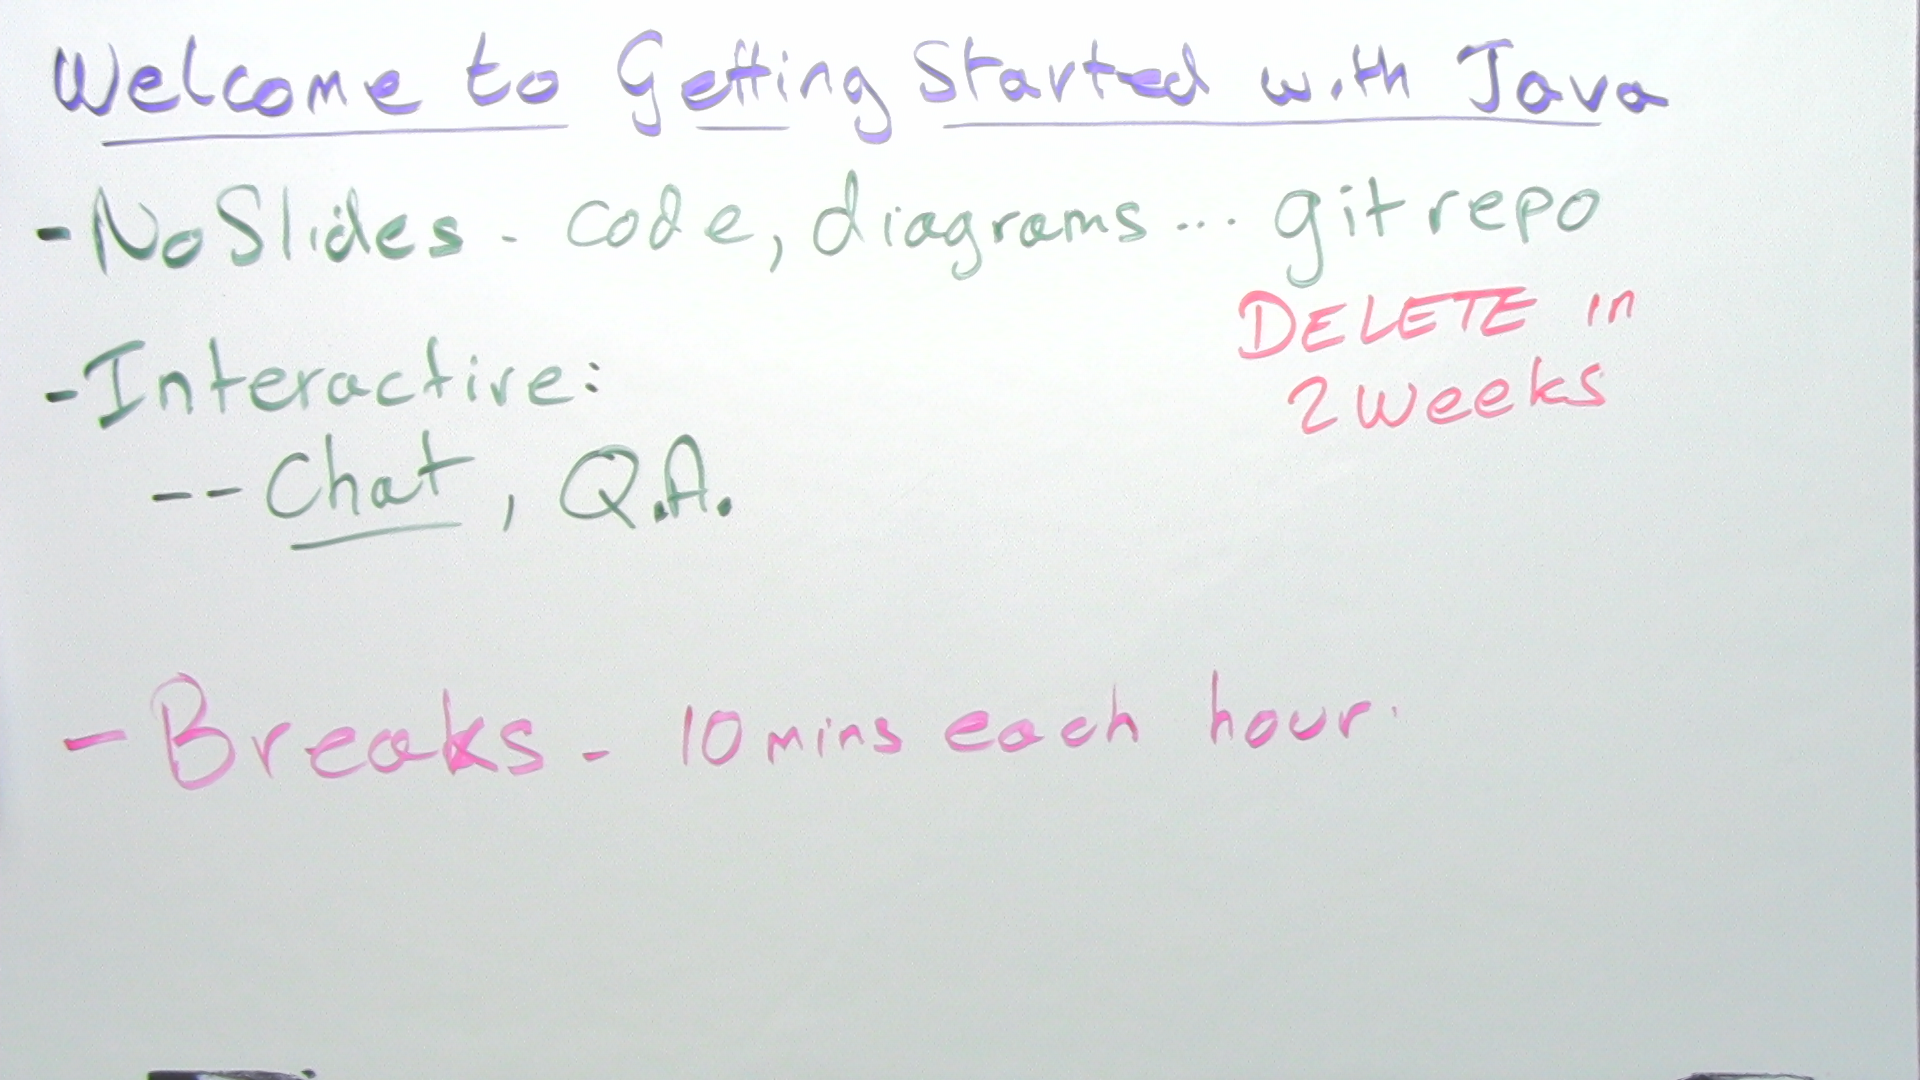 Welcome to Getting Started with Java
- No Slides - code, diagrams... git repo
DELETE in
2 weeks
- Interactive:
-- Chat, Q.A.
- Breaks - 10 mins each hour.